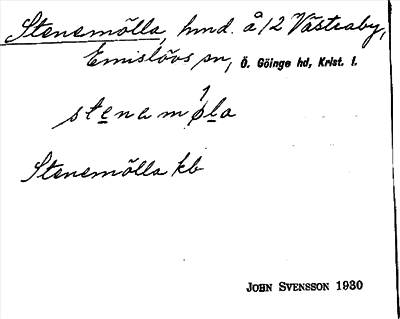 Stenemölla, hmd. å 12 Västraby,
Emislövs sn, Ö. Göinge hd, Krist. l.
stenamǿla
Stenemölla kb
JOHN SVENSSON 1930